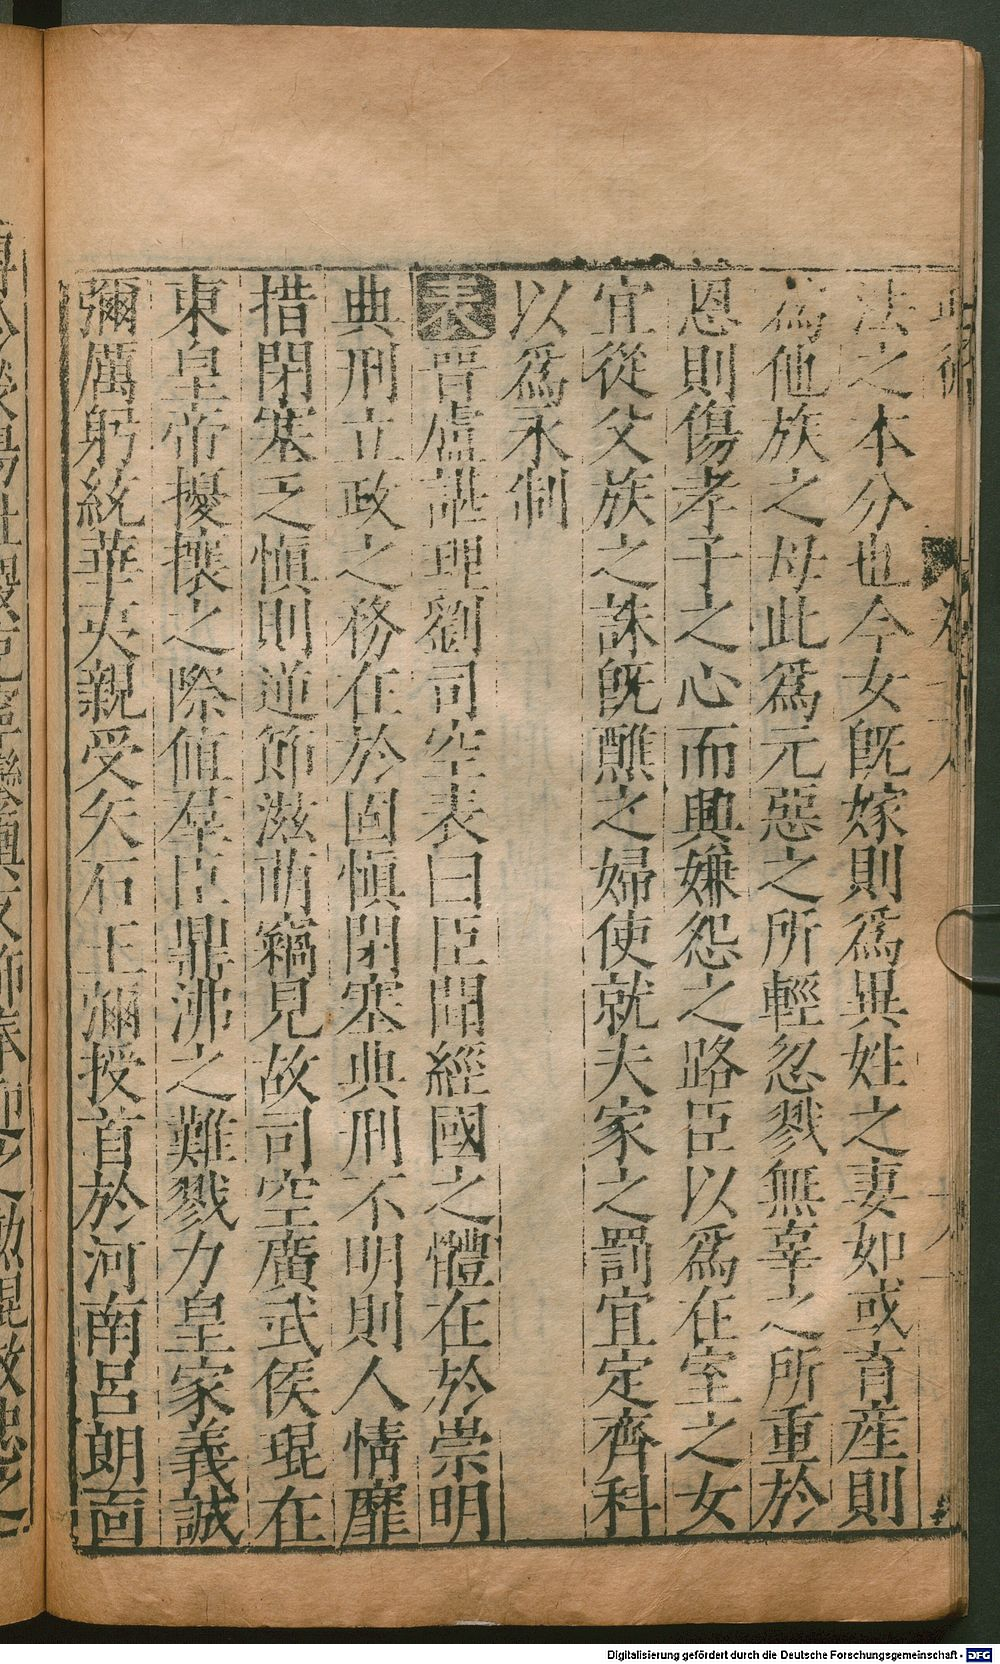 法之本分也今女既嫁則爲異姓之妻如或育産則
爲他族之母此爲元惡之所輕忽戮無辜之所重於
恩則傷孝子之心而興嫌怨之路臣以爲在室之女
宜從父族之誅既醮之婦使就夫家之罰宜定齊科
以爲永制
表晉盧諶理劉司空表曰臣聞經國之體在於崇明
典刑立政之務在於固慎閉塞典刑不明則人情靡
措閉塞乏慎則逆節滋萌竊見故司空廣武侯琨在
東皇帝擾攘之際値羣臣鼎沸之難戮力皇家義誠
彌厲躬統華夷親受矢石王彌授首於河南呂朗面
Digitalisierung gefördert durch die Deutsche Forschungsgemeinschaft - DFG